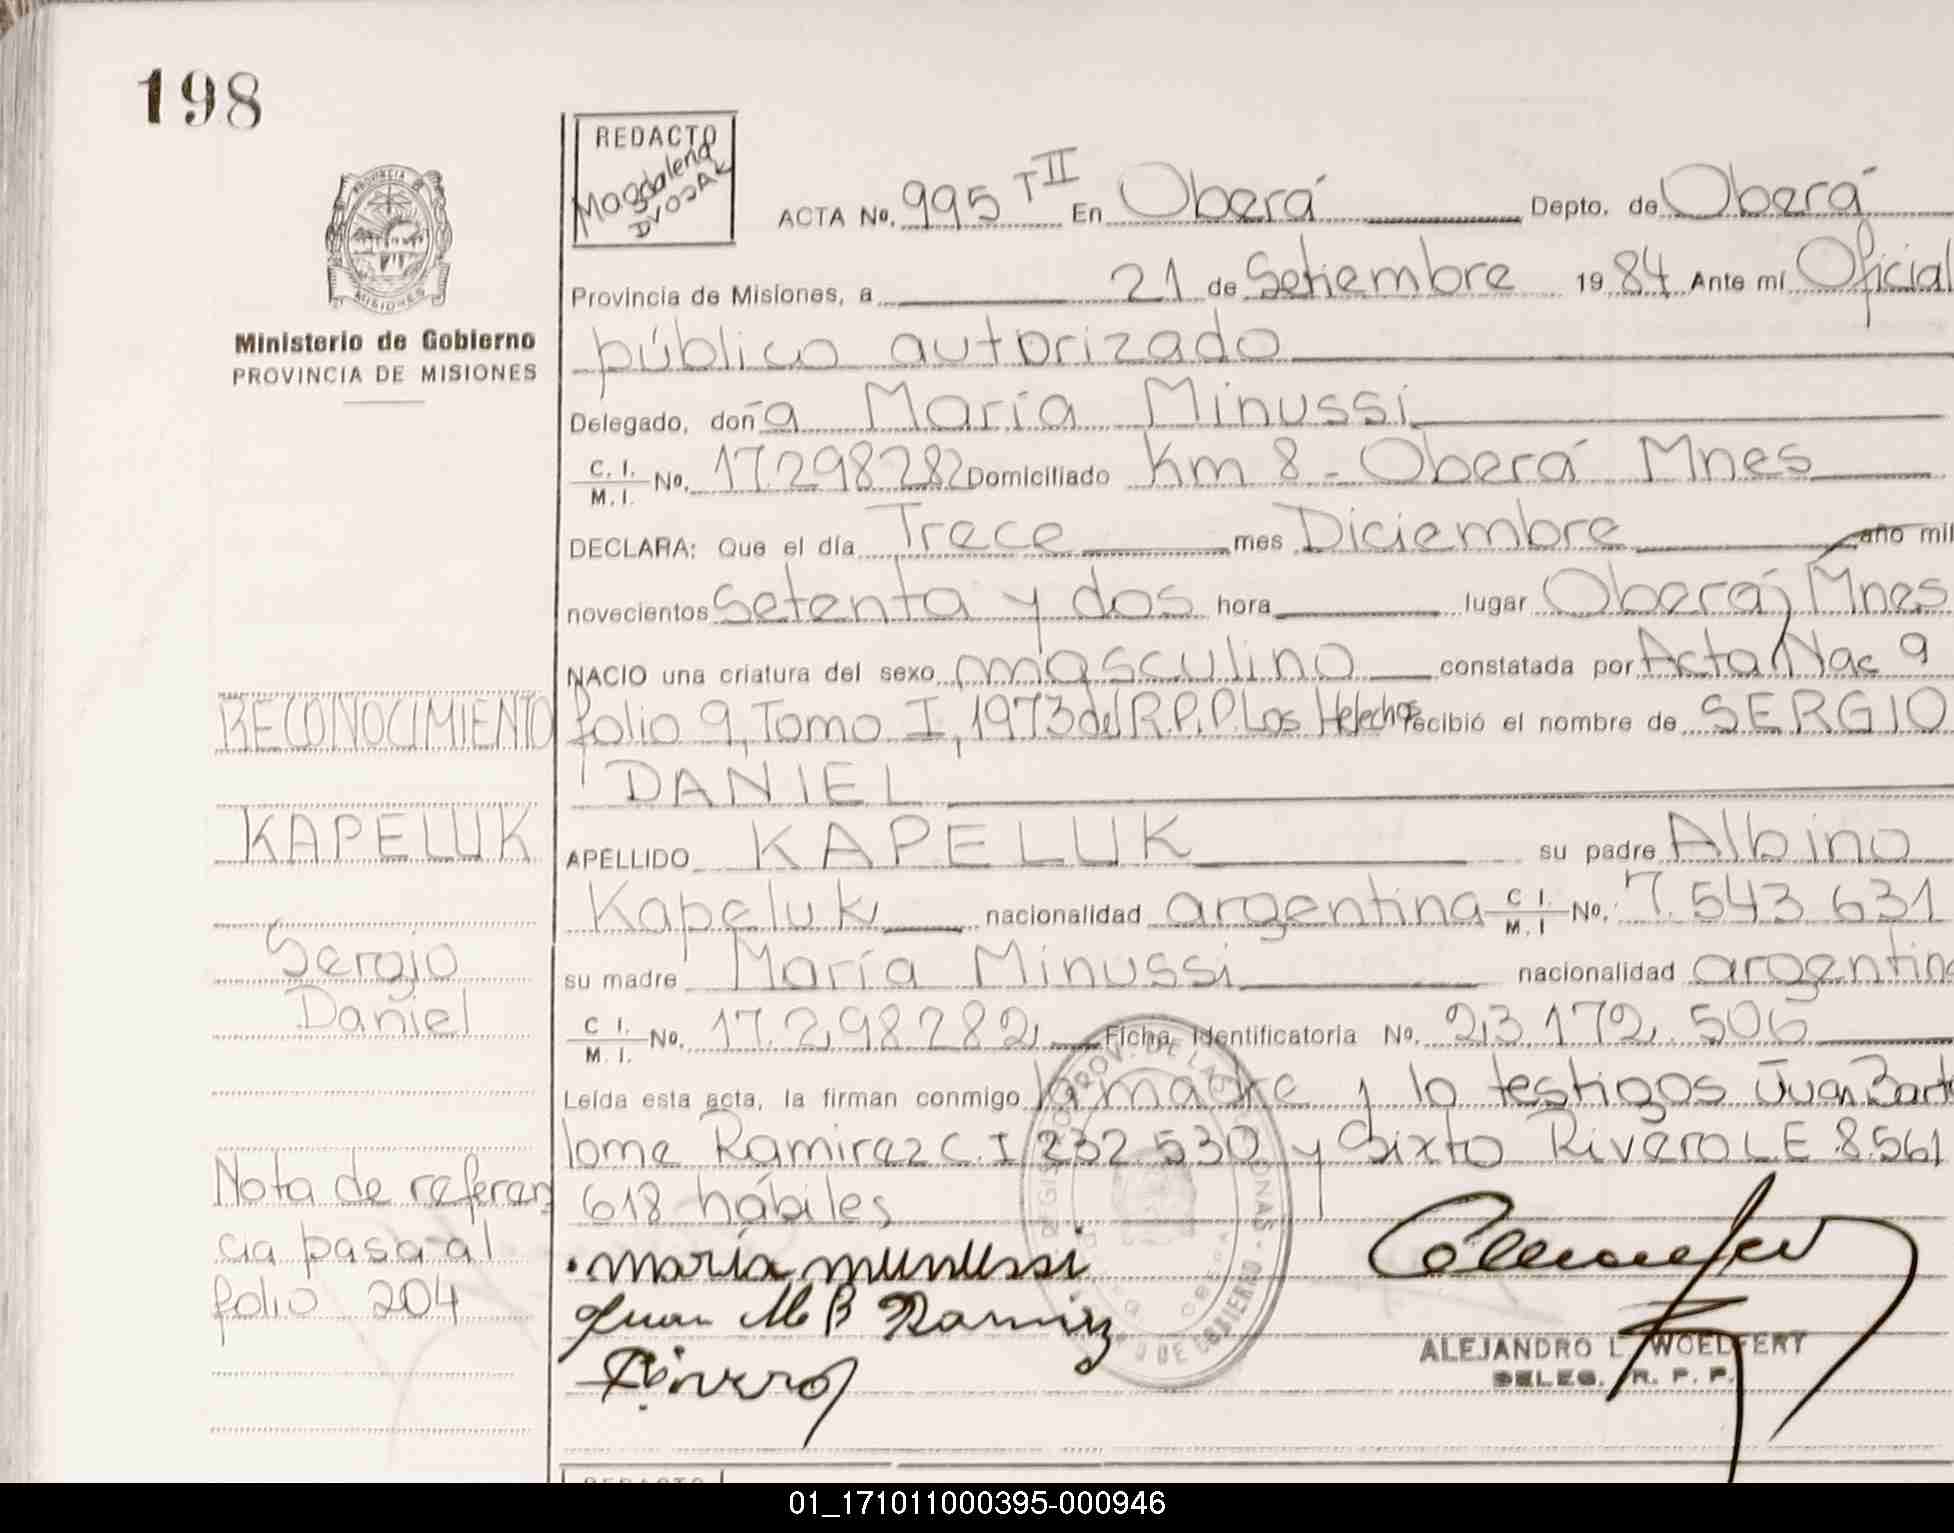 198
PROVINCIA
MISIONES
Ministerio de Gobierno
PROVINCIA DE MISIONES
REDACTO
Magdalena
DVOJAK
ACTA No. 995 T II En Oberá Depto. de Oberá
Provincia de Misiones, a 21 de Setiembre 19 84 Ante mí Oficial
público autorizado
Delegado, doña María Minussi
C. I. / M. I. No. 17.298282 Domiciliado Km 8 - Oberá Mnes
DECLARA: Que el día Trece mes Diciembre año mil
novecientos setenta y dos hora lugar Oberá, Mnes
NACIO una criatura del sexo masculino constatada por Acta Nac 9
folio 9, Tomo I, 1973 del R.P.P. Los Helechos recibió el nombre de SERGIO
DANIEL
APELLIDO KAPELUK su padre Albino
Kapeluk nacionalidad argentina C I. / M. I No. 7.543 631
su madre María Minussi nacionalidad argentina
C I. / M. I. No. 17.298282 Ficha Identificatoria No. 23 172.506
Leída esta acta, la firman conmigo la madre y lo testigos Juan Barto
lome Ramirez C.I 232.530 y Sixto Rivero L E 8.561
618 hábiles
RECONOCIMIENTO
KAPELUK
Sergio
Daniel
Nota de referen
cia pasa al
folio 204
maría munussi
Juan M B Ramirez
Rivero
PROV. DE LAS PERSONAS
DE GOBIERNO
ALEJANDRO L. WOELFERT
DELEG. R. P. P.
REDACTO
01_171011000395-000946